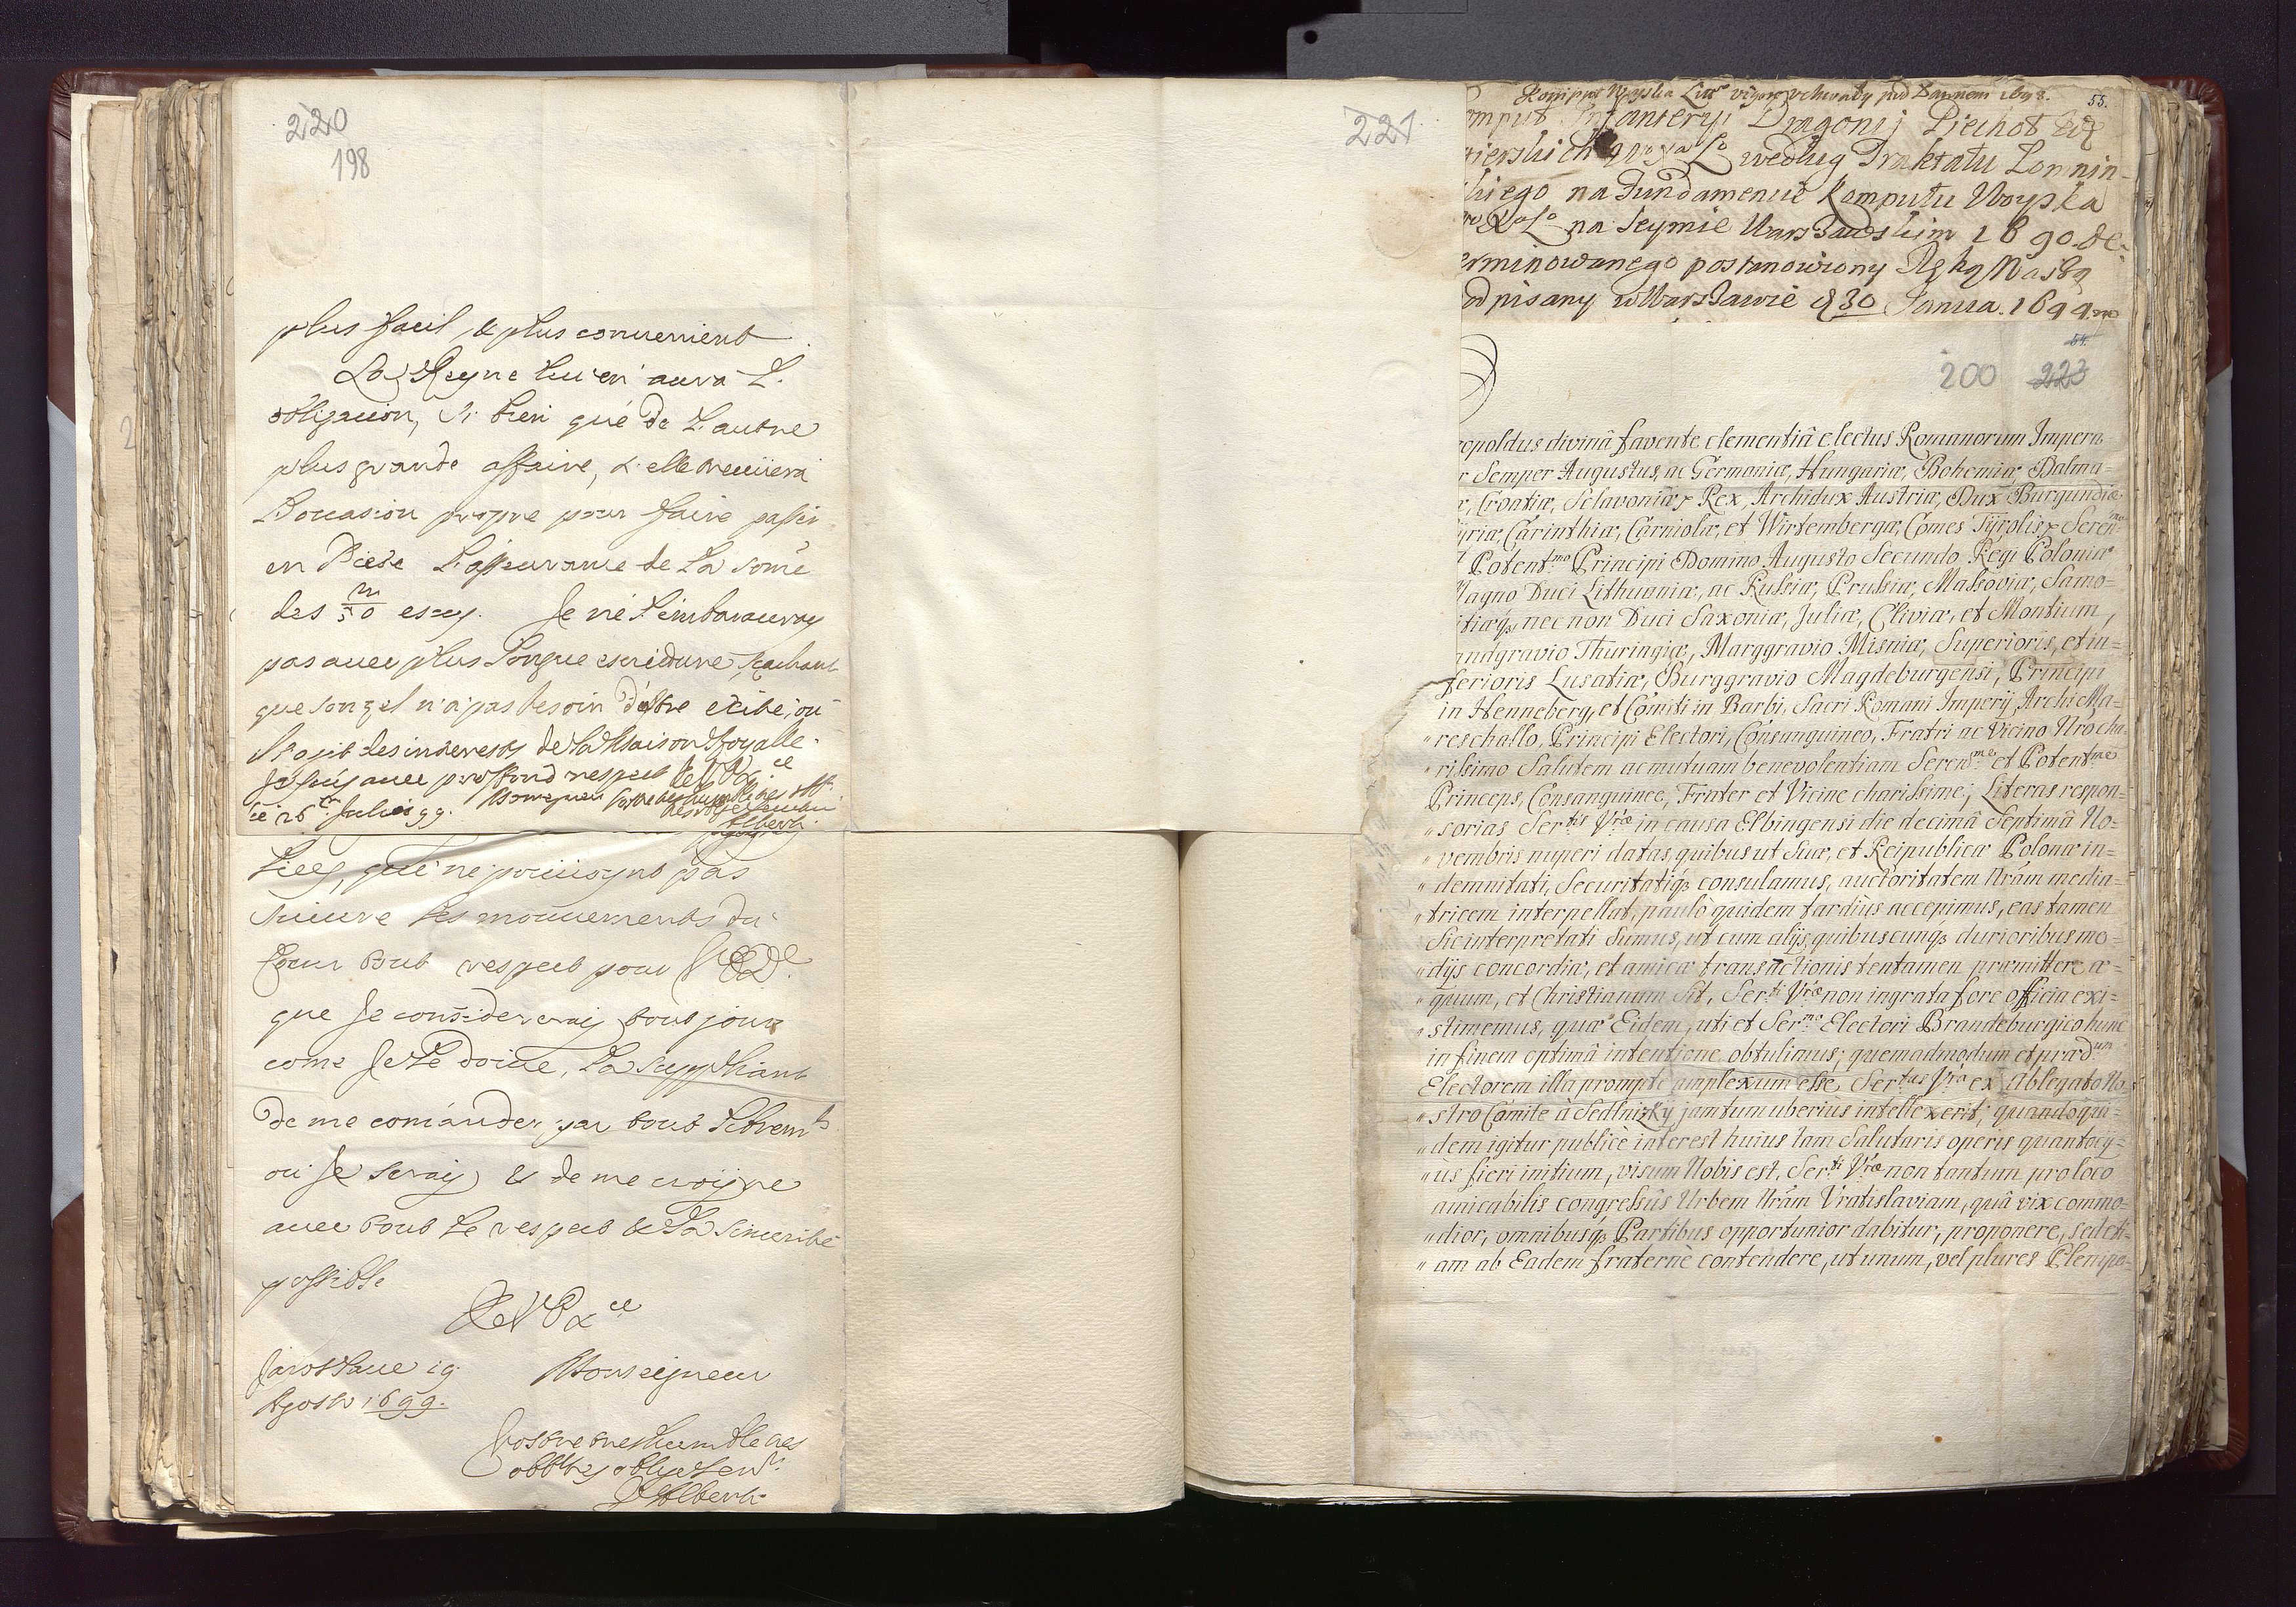 220
198
plus facil & plus convenient
La Reyne luy en aura l'
obligacion, si bien que de l'autre
plus grande affaire, & elle
l'occasion propre pour faire passer
en Diete l'asseurance de la some
des m/50 escuz. Je ne l'embarauray
pas avec plus longue escriture, sachant
que son zel n'a pas besoin d'estre exité, ou
s'agit des interests de la Maison Royalle.
Je suis avec proffond respect
ce 26 Julio 99.
Alberti
que ne pas
suivre les mouvements du
coeur tout respect pour
que je considereray tout jour
come je le doive, la suppliant
de me comander par tout
où je seray & de me croyre
avec tout le respect & la sincerité
possible
De V Ex ce
Jaroslaue 19 Monseigneur
Agosto 1699.
Vostre tres humble & tres
Alberti
221
55.
Komput Woyska Litt 1698.
omput Infanteryi Dragonij Piechot
według Traktatu
na Fundamencie Komputu Woyska
na Seymie Warszawskim 1690 de-
erminowanego postanowiony Ręką Naszą
odpisany w Warszawie d 30 Janua. 1699
54.
200 223
eopoldus divinâ favente clementiâ electus Romanorum Impera
r Semper Augustus, ac Germaniæ, Hungariæ, Bohemiæ Dalma-
æ, Croatiæ, Sclavoniæ Rex, Archidux Austriæ, Dux Burgundiæ
yriæ, Carinthiæ, Carniolæ, et Wirtembergæ, Comes Tyrolis Seren mo
t Potent mo Principi Domino Augusto Secundo Regi Poloniæ
Magno Duci Lithuaniæ, ac Russiæ, Prussiæ, Massoviæ, Samo-
itiæq, nec non Duci Saxoniæ, Juliæ, Cliviæ, et Montium,
andgravio Thuringiæ, Marggravio Misniæ, Superioris, et in-
ferioris Lusatiæ, Burggravio Magdeburgensi, Principi
in Henneberg, et Comiti in Barbi, Sacri Romani Imperij Archi Ma-
reschallo, Principi Electori, Consanguineo, Fratri ac Vicino Nro cha-
rissimo Salutem ac mutuam benevolentiam Seren me et Potent me
Princeps, Consanguinee, Frater et Vicine charissime; Literas respon-
sorias Ser tis Vræ in causa Elbingensi die decimâ Septimâ No-
vembris nuperi datas quibus ut Suæ, et Reipublicæ Polonæ in-
demnitati, Securitatiq consulamus, auctoritatem Nram media-
tricem interpellat, paulò quidem tardiùs accepimus, eas tamen
Sic interpretati Sumus, ut cum alijs quibuscunq durioribus mo-
dijs concordiæ, et amicæ transactionis tentamen præmittere æ-
quum, et Christianum Sit, Ser ti Vræ non ingrata fore officia exi-
stimemus, quæ Eidem, uti et Ser mo Electori Brandeburgico hunc
in finem optimâ intentione obtulimus; quemadmodum et præd um
Electorem illa promptè amplexum esse, Ser tas Vra ex Ablegato No-
stro Comite à Sedlnizky jam tum uberius intellexerit; quandoqui-
dem igitur publicè interest huius tam Salutaris operis quantocy-
ùs fieri initium, visum Nobis est, Ser ti Vræ non tantum pro loco
amicabilis congressûs Urbem Nram Vratislaviam, quâ vix commo-
dior, omnibusq Partibus opportunior dabitur, proponere, sed eti-
am ab Eadem fraternè contendere, ut unum, vel plures Plenipo-